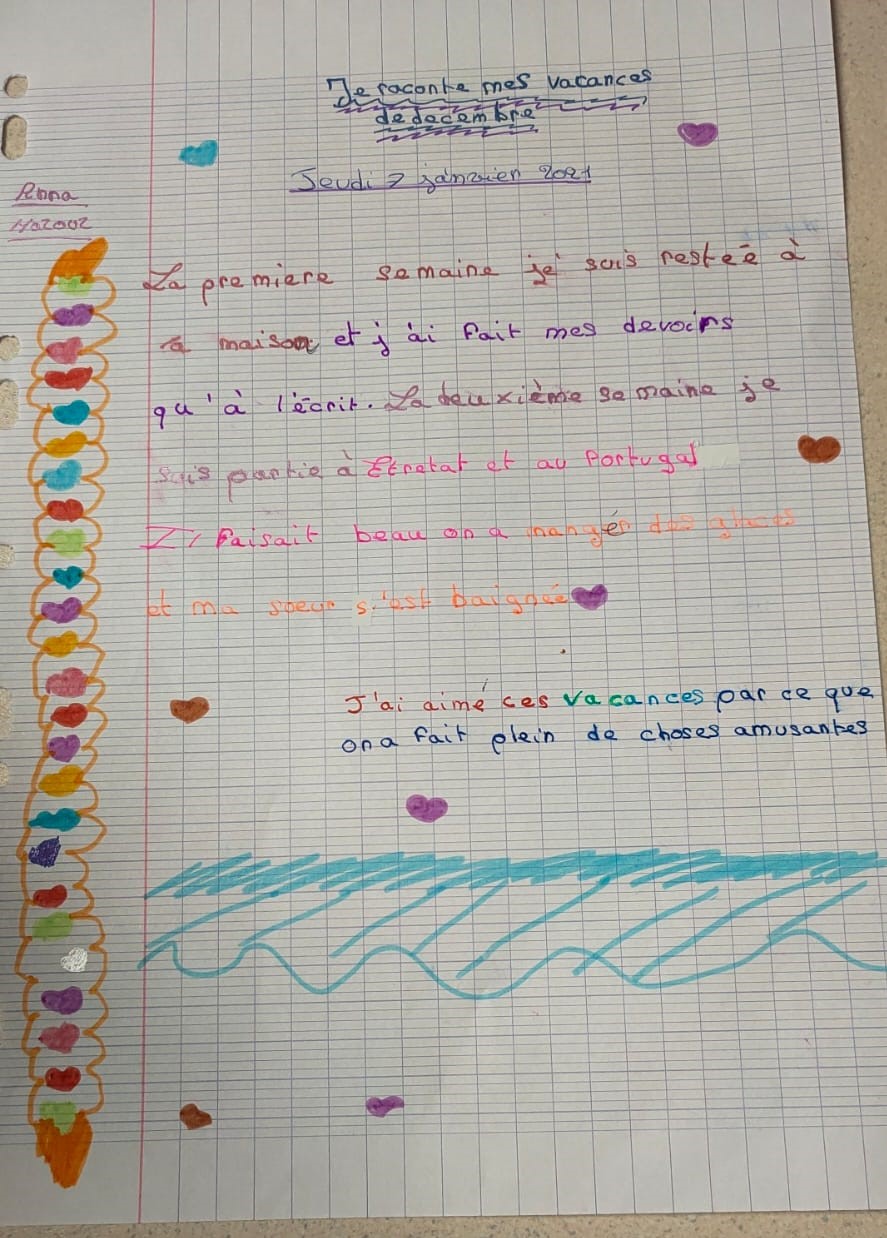 Je raconte mes vacances
de decembre
Jeudi 7 janvier 2021
Anna
La premiere semaine je suis restée à
la maison et j'ai fait mes devoirs
qu'à l'écrit. La deuxième semaine je
suis partie à Etretat et au Portugal
Il faisait beau on a manger des glaces
et ma soeur s'est baignée
J'ai aimé ces vacances par ce que
on a fait plein de choses amusantes